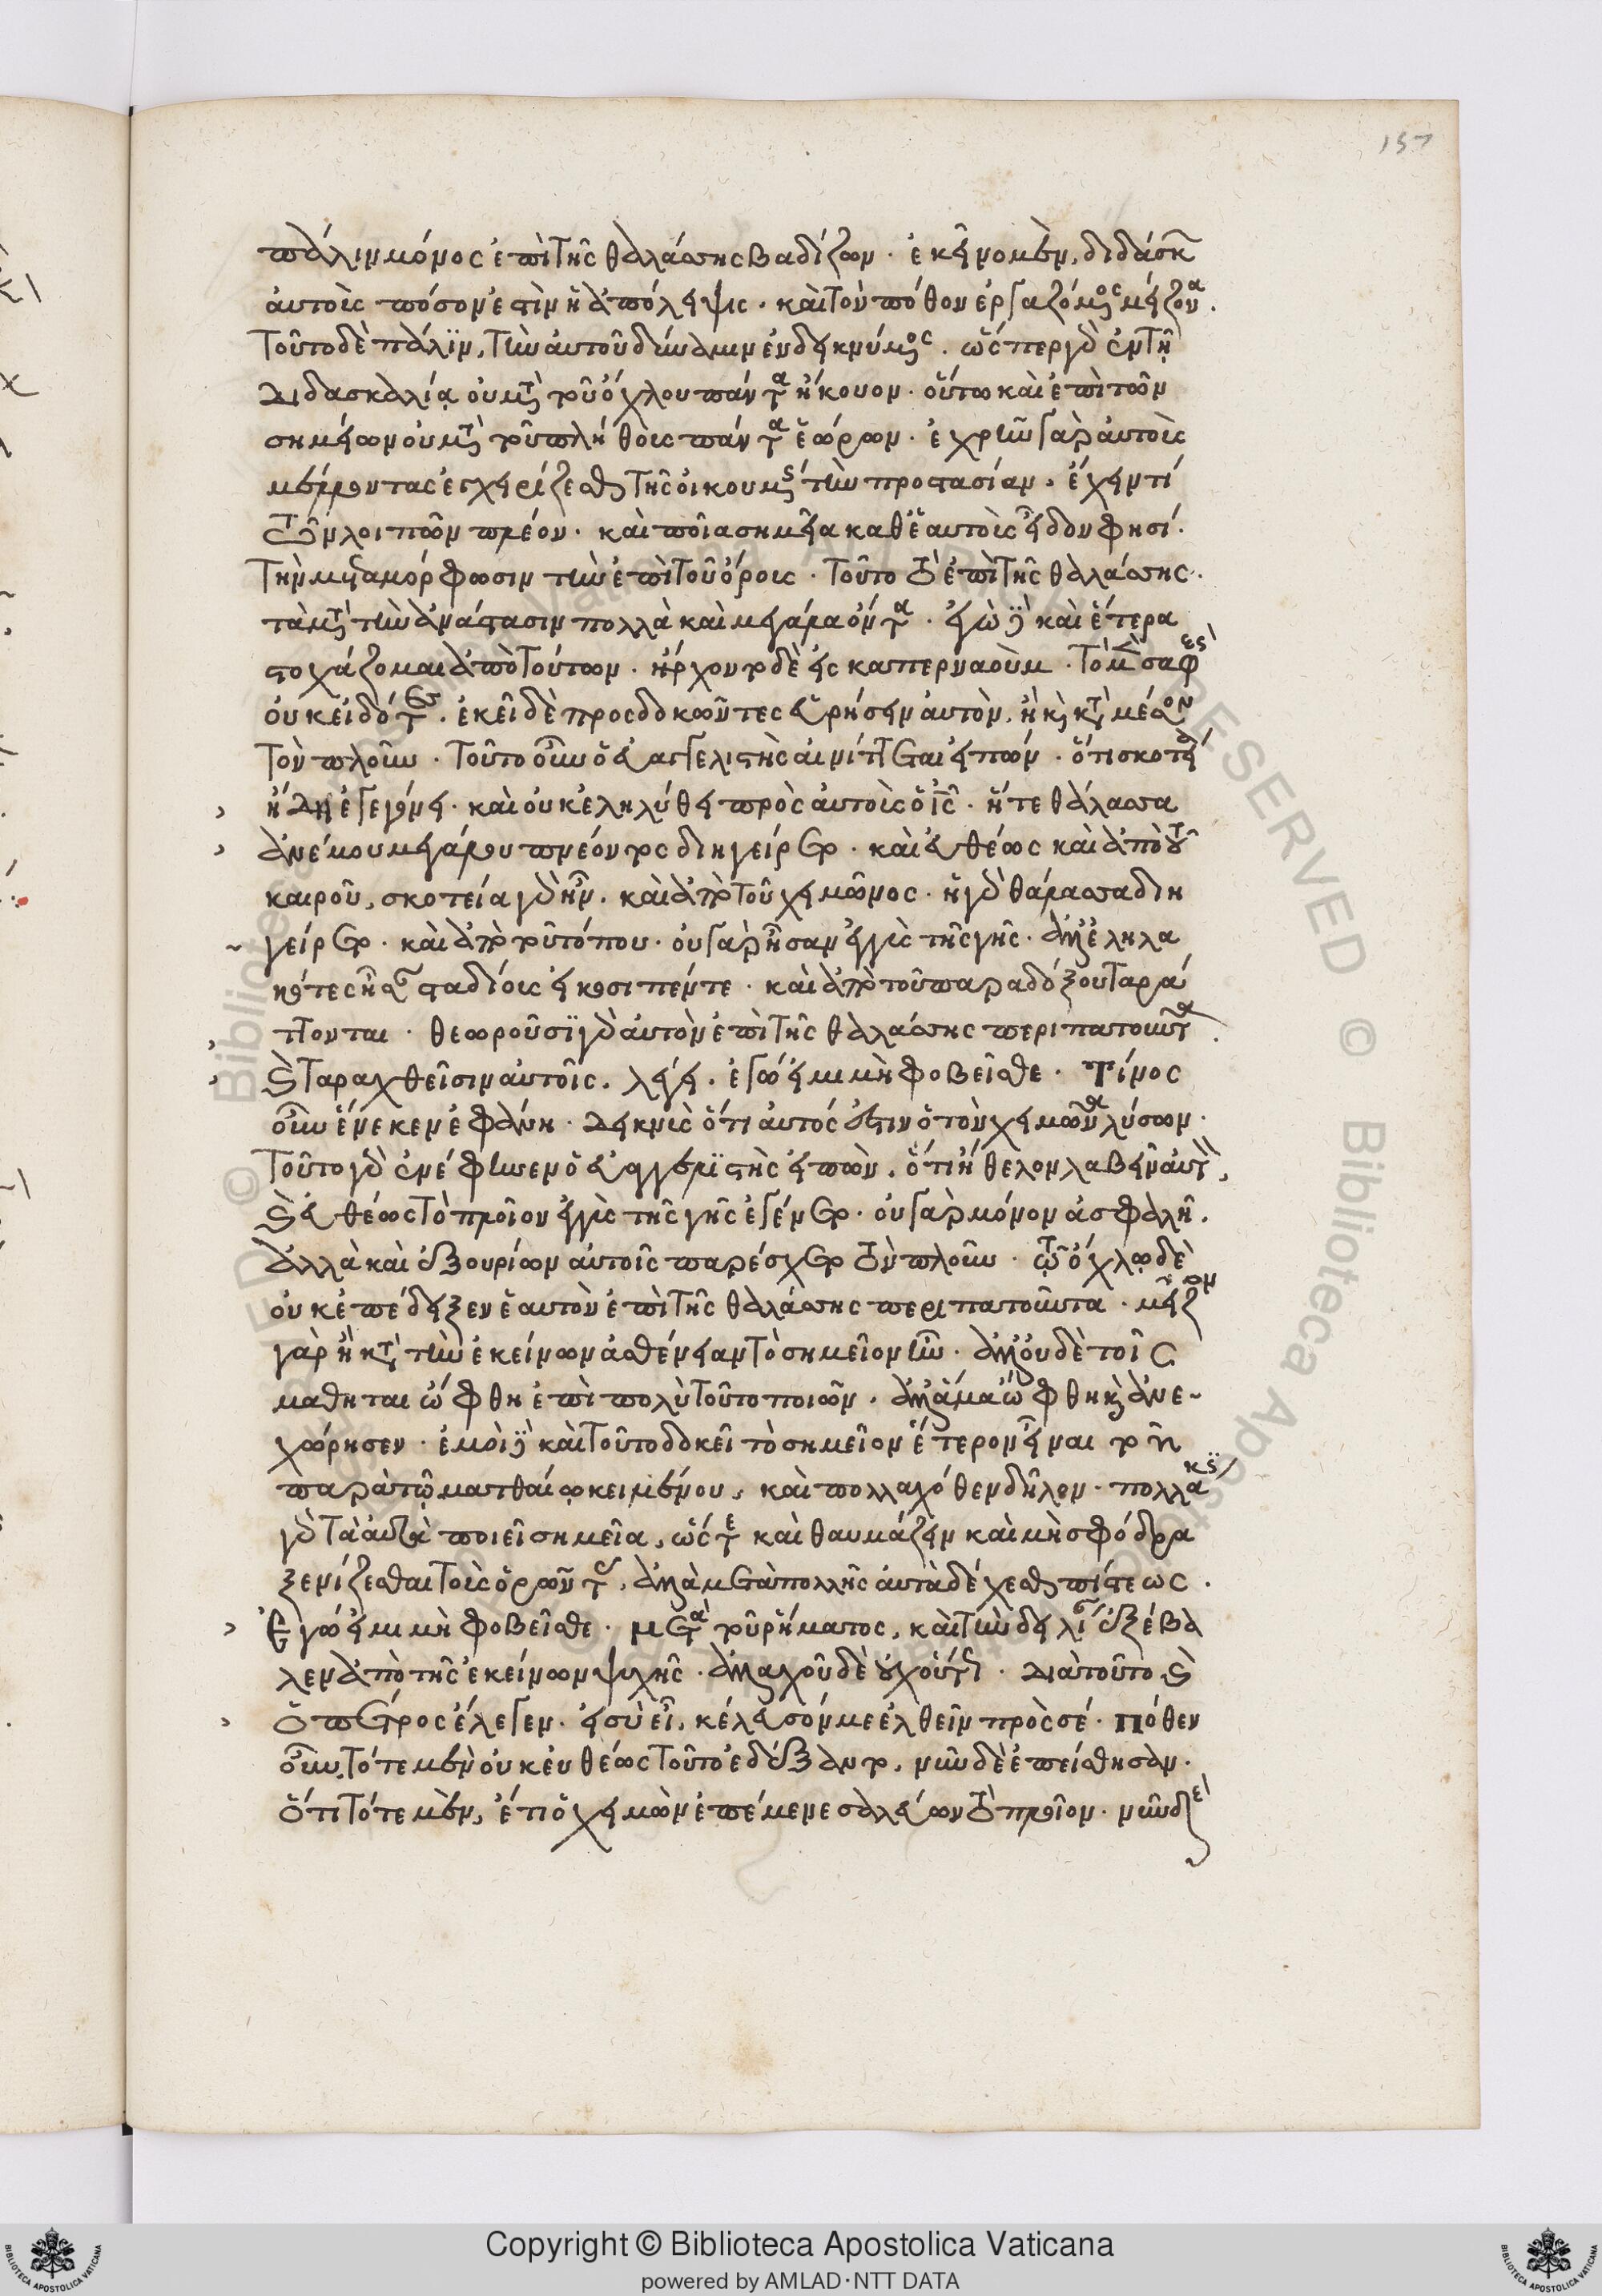 157
πάλιν μόνος ἐπὶ τῆς θαλάσσης βαδίζων· ἐκεῖνο μὲν, διδάσκ
αὐτοὺς πόσον ἐστὶν ἡ ἀπόλειψις· καὶ τὸν πόθον ἐργαζόμος μείζονα·
Τοῦτο δὲ πάλϊν, τὴν αὐτοῦ δύναμιν ἐνδεικνύμος. ὥσπερ γὰρ ἐν τῇ
διδασκαλίᾳ οὐ μτ τοῦ ὄχλου πάντα ἤκουον· οὕτω καὶ ἐπὶ τῶν
σημείων οὐ μτ τοῦ πλήθους πάντα ἑώρων· ἐχρῆν γὰρ αὐτοὺς
μέλλοντας ἐγχειρίζεσθαι τῆς οἰκουμς τὴν προστασίαν, ἔχειν τί
τῶν λοιπῶν πλέον· καὶ ποῖα σημεῖα καθ' ἑαυτοὺς εἶδον φησί·
Τὴν μεταμόρφωσιν τὴν ἐπὶ τοῦ ὄρους· Τοῦτο τὸ ἐπὶ τῆς θαλάσσης·
τὰ μτ τὴν ἀνάστασιν πολλὰ καὶ μεγάλα ὄντα· ἐγὼ δὲ καὶ ἕτερα
στοχάζομαι ἀπὸ τούτων· ἤρχοντο δὲ εἰς καπερναούμ· Τὸ μὲν σαφὲς
οὐκ εἰδότες· ἐκεῖ δὲ προσδοκῶντες εὑρήσειν αὐτὸν, ἢ καὶ κτ μέσον
Τὸν πλοῦν· Τοῦτο οὖν ὁ εὐαγγελιστὴς αἰνίττεται εἰπών· ὅτι σκοτεί
ἤδη ἐγεγόνει· καὶ οὐκ ἐληλύθει πρὸς αὐτοὺς ὁ ις· ἥ τε θάλασσα
ἀνέμου μεγάλου πνέοντος διηγείρετο· καὶ εὐθέως καὶ ἀπὸ τοῦ
καιροῦ, σκοτεία γὰρ ἦν· καὶ ἀπὸ τοῦ χειμῶνος· ἡ γὰρ θάλασσα διη
γείρετο· καὶ ἀπὸ τοῦ τόπου· οὐ γὰρ ἦσαν ἐγγὺς τῆς γῆς· ἀλλ' ἐληλα
κότες ἦσαν σταδίους εἴκοσι πέντε· καὶ ἀπὸ τοῦ παραδόξου ταρά
ττονται· θεωροῦσϊ γὰρ αὐτὸν ἐπὶ τῆς θαλάσσης περιπατοῦντα
καὶ ταραχθεῖσιν αὐτοῖς, λέγει· ἐγώ εἰμι μὴ φοβεῖσθε· Τίνος
οὖν ἕνεκεν ἐφάνη· Δεικνὺς ὅτι αὐτός ἐστιν ὁ τὸν χειμῶνα λύσων·
Τοῦτο γὰρ ἐνέφηνεν ὁ εὐαγγελϊστὴς εἰπὼν, ὅτι ἤθελον λαβεῖν αὐτὸν,
καὶ εὐθέως τὸ πλοῖον ἐγγὺς τῆς γῆς ἐγένετο· οὐ γὰρ μόνον ἀσφαλῆ.
ἀλλὰ καὶ ἐξ οὐρίων αὐτοῖς παρέσχετο τὸν πλοῦν· τῷ ὄχλῳ δὲ
οὐκ ἐπέδειξεν ἑαυτὸν ἐπὶ τῆς θαλάσσης περιπατοῦντα· μεῖζον
γὰρ ἢ κτ τὴν ἐκείνων ἀσθένειαν τὸ σημεῖον ἦν· ἀλλ' οὐδὲ τοῖς
μαθηται ὤφθη ἐπὶ πολὺ τοῦτο ποιῶν, ἀλλ' ἅμα ὤφθη καὶ ἀνε-
χώρησεν· ἐμοὶ δὲ καὶ τοῦτο δοκεῖ τὸ σημεῖον ἕτερον εἶναι τοῦ
παρὰ τῷ ματθαίῳ κειμένου, καὶ πολλαχόθεν δῆλον· πολλάκις
γὰρ τὰ αὐτὰ ποιεῖ σημεῖα, ὥστε καὶ θαυμάζειν καὶ μὴ σφόδρα
ξενίζεσθαι τοὺς ὁρῶντας, ἀλλὰ μετὰ πολλῆς αὐτὰ δέχεσθαι πίστεως·
Ἐγώ εἰμι μὴ φοβεῖσθε· μετὰ τοῦ ῥήματος, καὶ τὴν δειλίαν ἐξέβα
λεν ἀπὸ τῆς ἐκείνων ψυχῆς· ἀλλαχοῦ δὲ οὐχ οὕτω· Διὰ τοῦτο καὶ
Ὁ πέτρος ἔλεγεν· εἰ σὺ εἶ, κέλευσόν με ἐλθεῖν πρὸς σέ· πόθεν
οὖν, τότε μὲν οὐκ εὐθέως τοῦτο ἐδέξαντο, νῦν δὲ ἐπείσθησαν·
Ὅτι τότε μὲν, ἔτι ὁ χειμὼν ἐπέμενε σαλεύων τὸ πλοῖον· νῦν δὲ
Copyright © Biblioteca Apostolica Vaticana
powered by AMLAD·NTT DATA